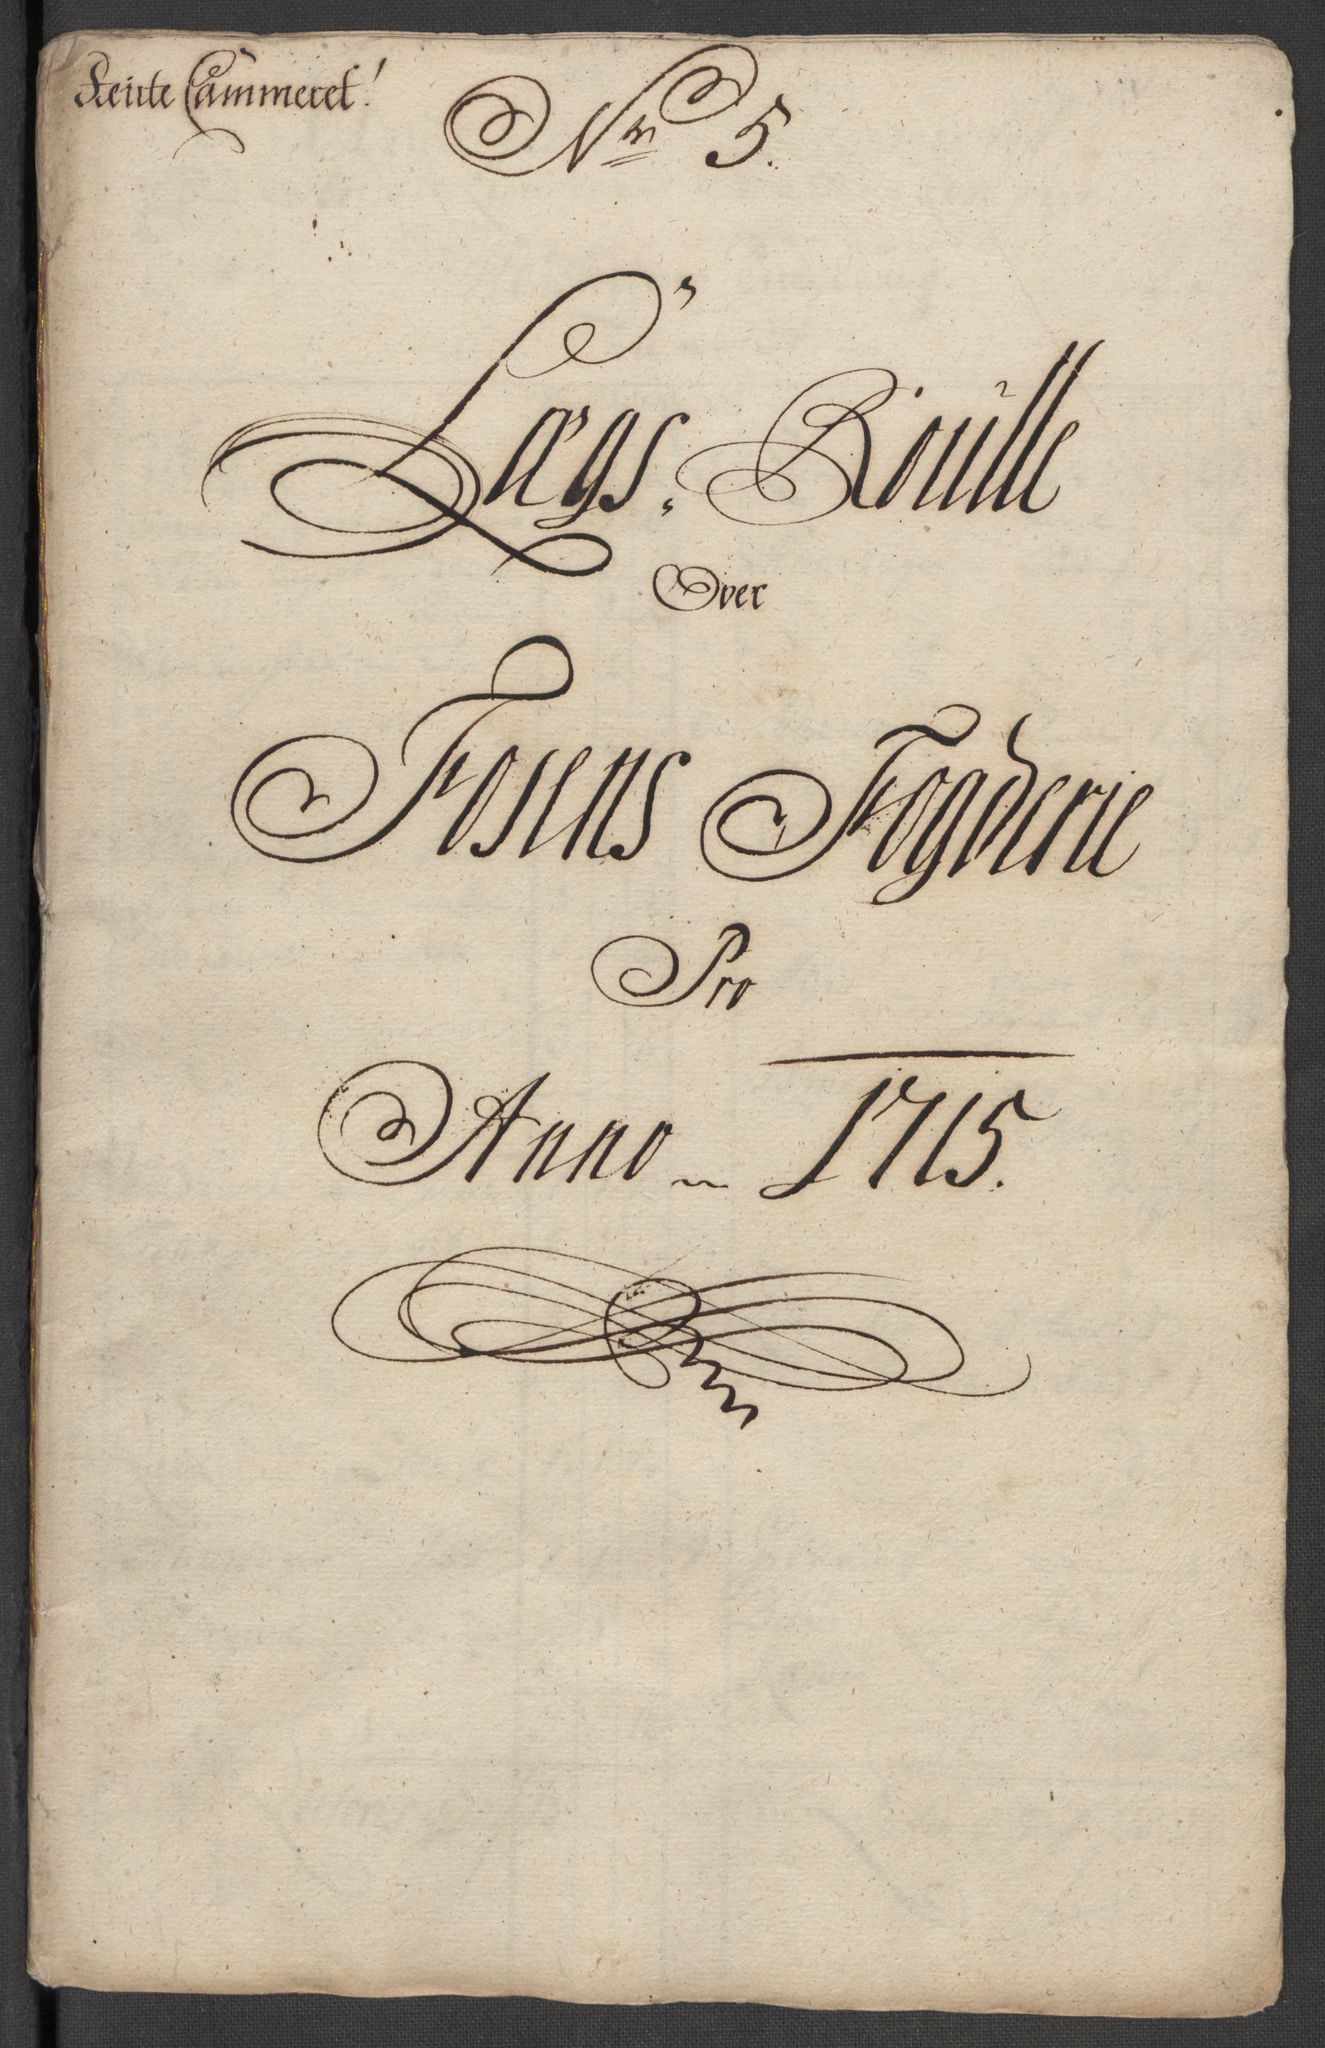 Rente Cammeret!
No 5.
Lægs, Roulle
Over
Fosens Fogderie
Pro
Anno 1715.